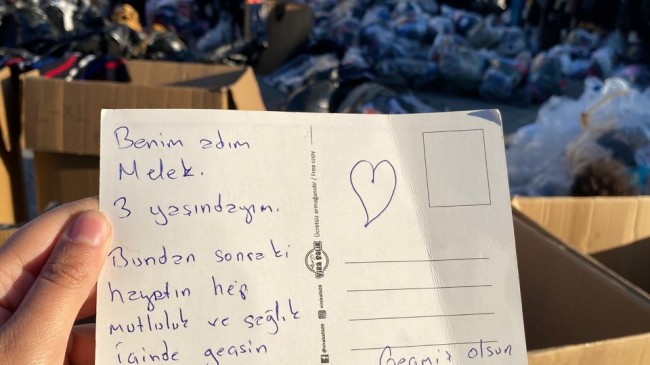 Benim adım
Melek.
3 yaşındayım.
Bundan sonraki
hayatın hep
mutluluk ve sağlık
içinde geçsin
Geçmiş olsun
Ücretsiz armağanıdır / Free copy